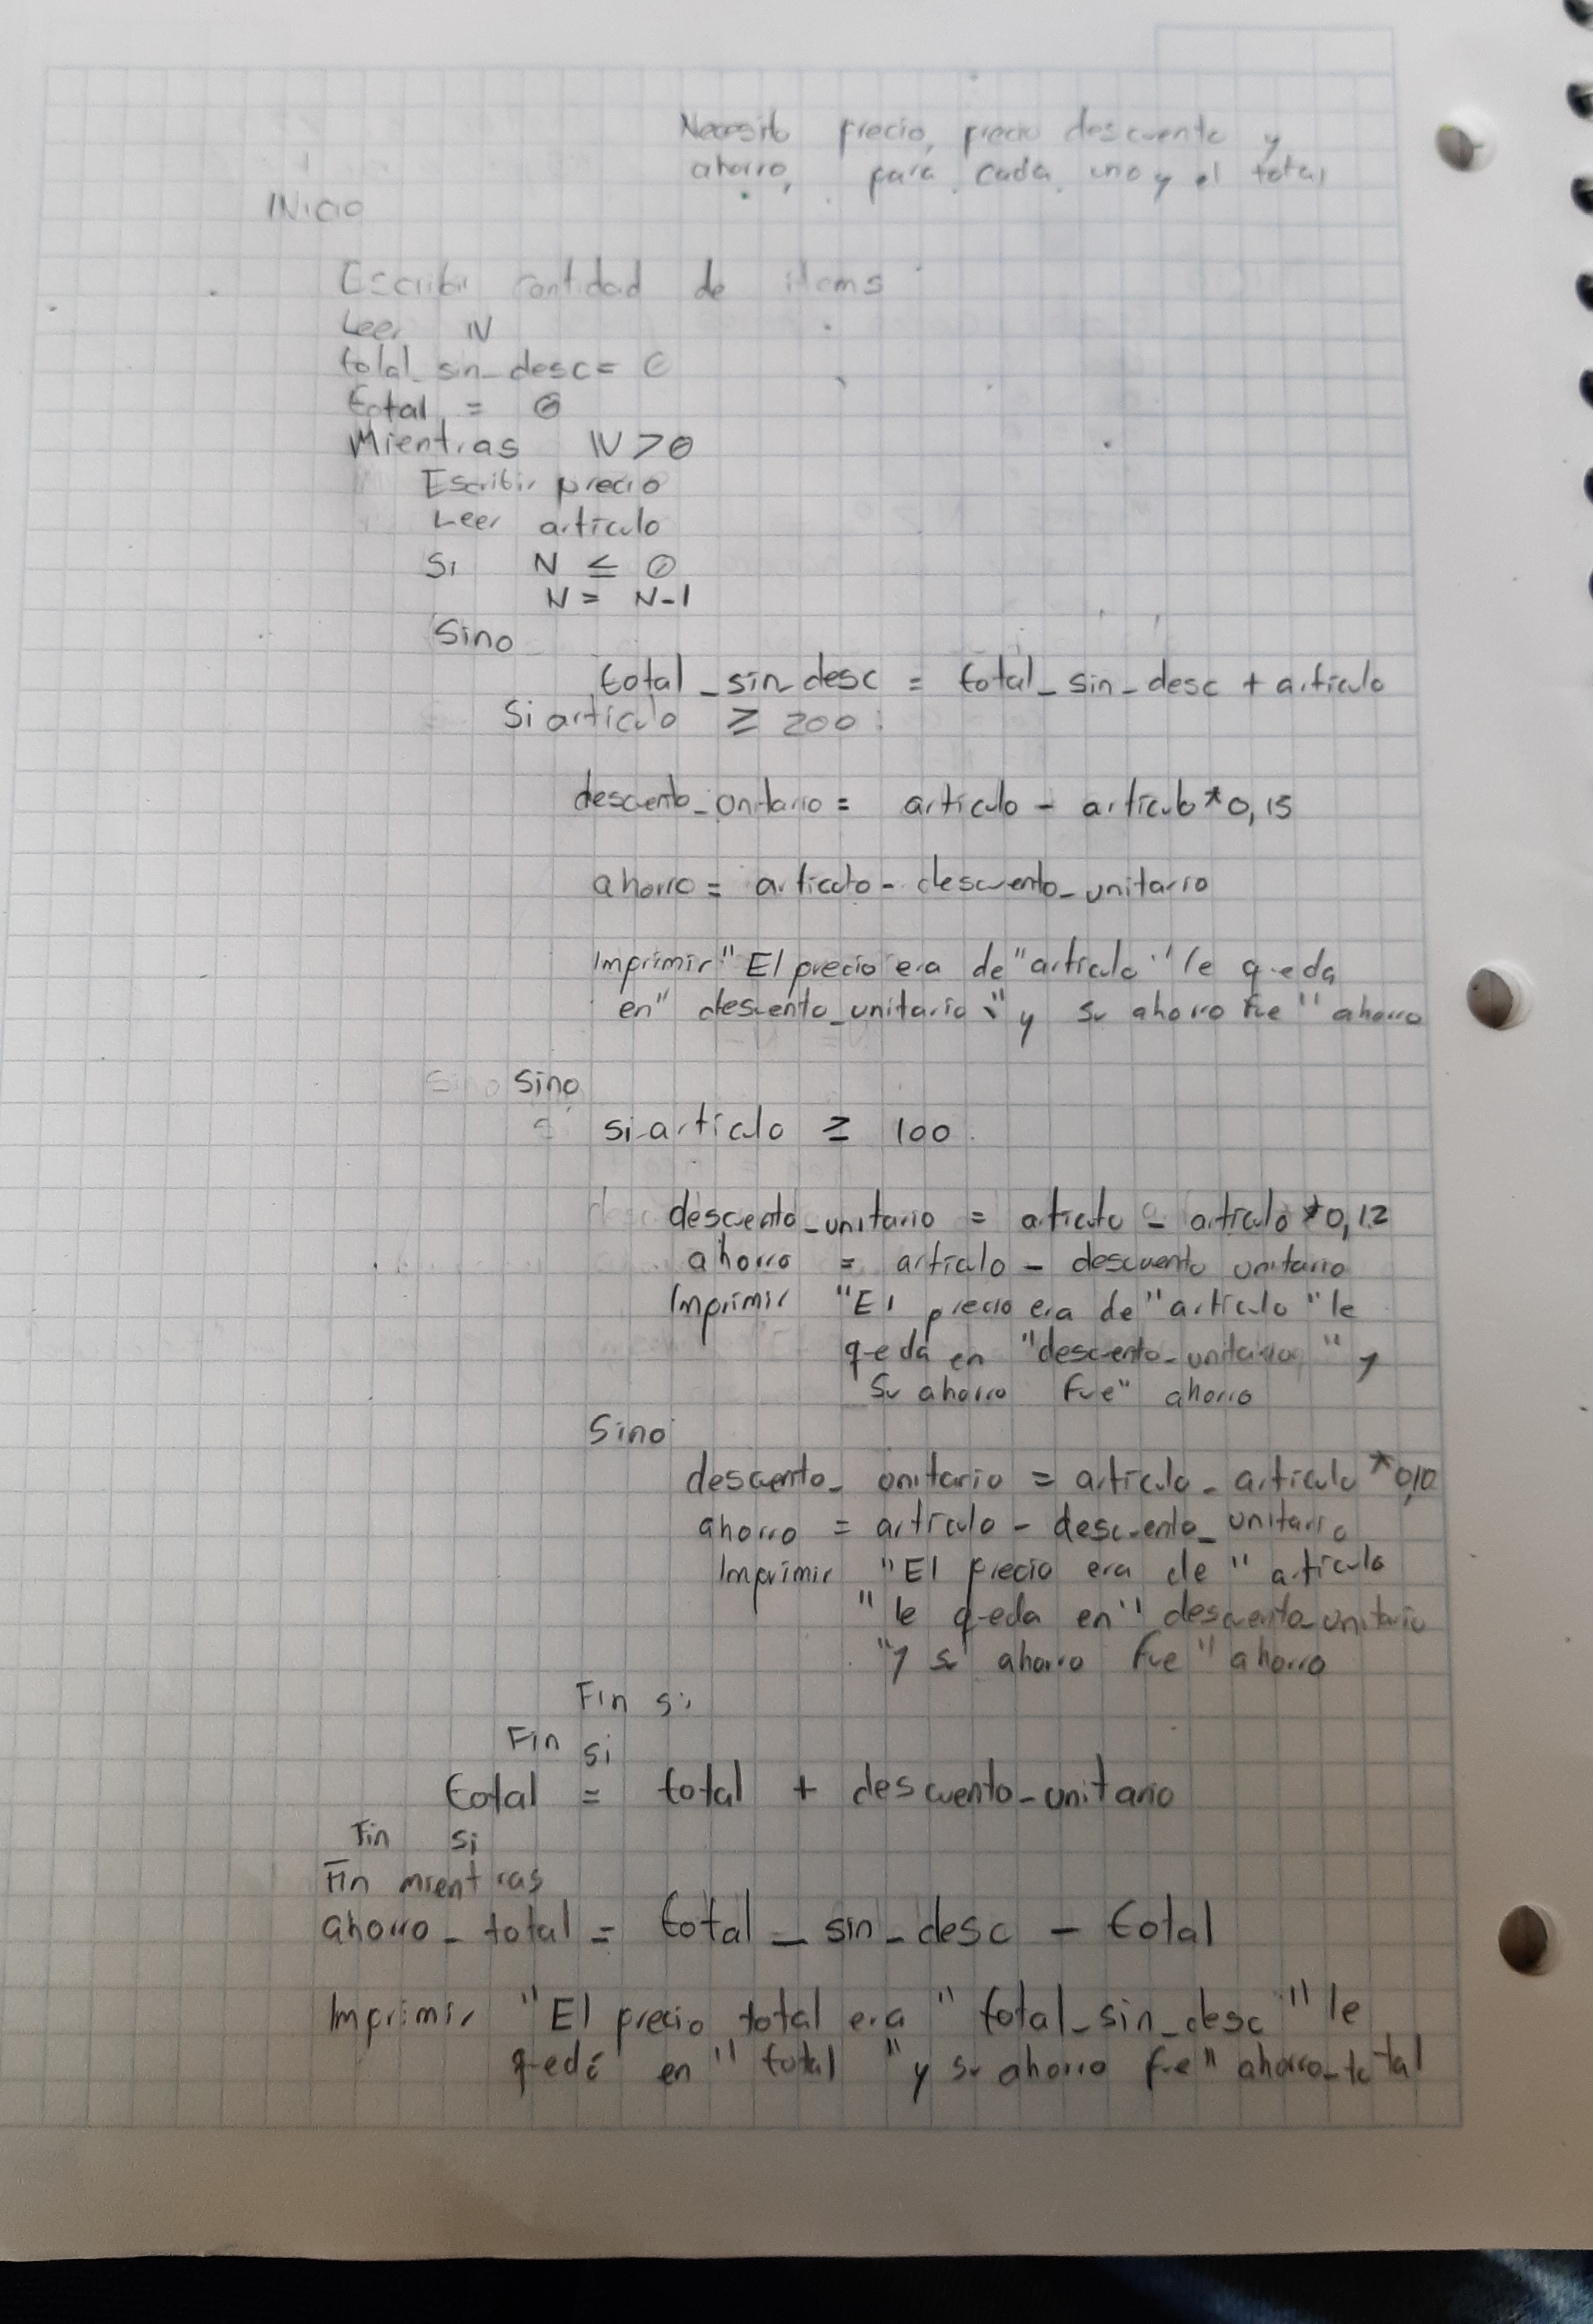 Necesito precio, precio descuento y
ahorro, para cada uno y el total
INICIO
Escribir cantidad de items
Leer N
total_sin_desc = 0
total = 0
Mientras N > 0
Escribir precio
Leer artículo
Si N ≤ 0
N = N-1
Sino
total_sin_desc = total_sin_desc + artículo
Si artículo ≥ 200:
descuento_unitario = artículo - artículo * 0,15
ahorro = artículo - descuento_unitario
Imprimir "El precio era de" artículo "le queda
en" descuento_unitario "y su ahorro fue" ahorro
Sino Sino
si artículo ≥ 100
descuento_unitario = artículo - artículo * 0,12
ahorro = artículo - descuento unitario
Imprimir "El precio era de" artículo "le
queda en "descuento_unitario" y
su ahorro fue" ahorro
Sino
descuento_unitario = artículo - artículo * 0,10
ahorro = artículo - descuento_unitario
Imprimir "El precio era de" artículo
"le queda en" descuento_unitario
"y su ahorro fue" ahorro
Fin si
Fin si
total = total + descuento_unitario
Fin si
Fin mientras
ahorro_total = total_sin_desc - total
Imprimir "El precio total era" total_sin_desc "le
quedó en" total "y su ahorro fue" ahorro_total